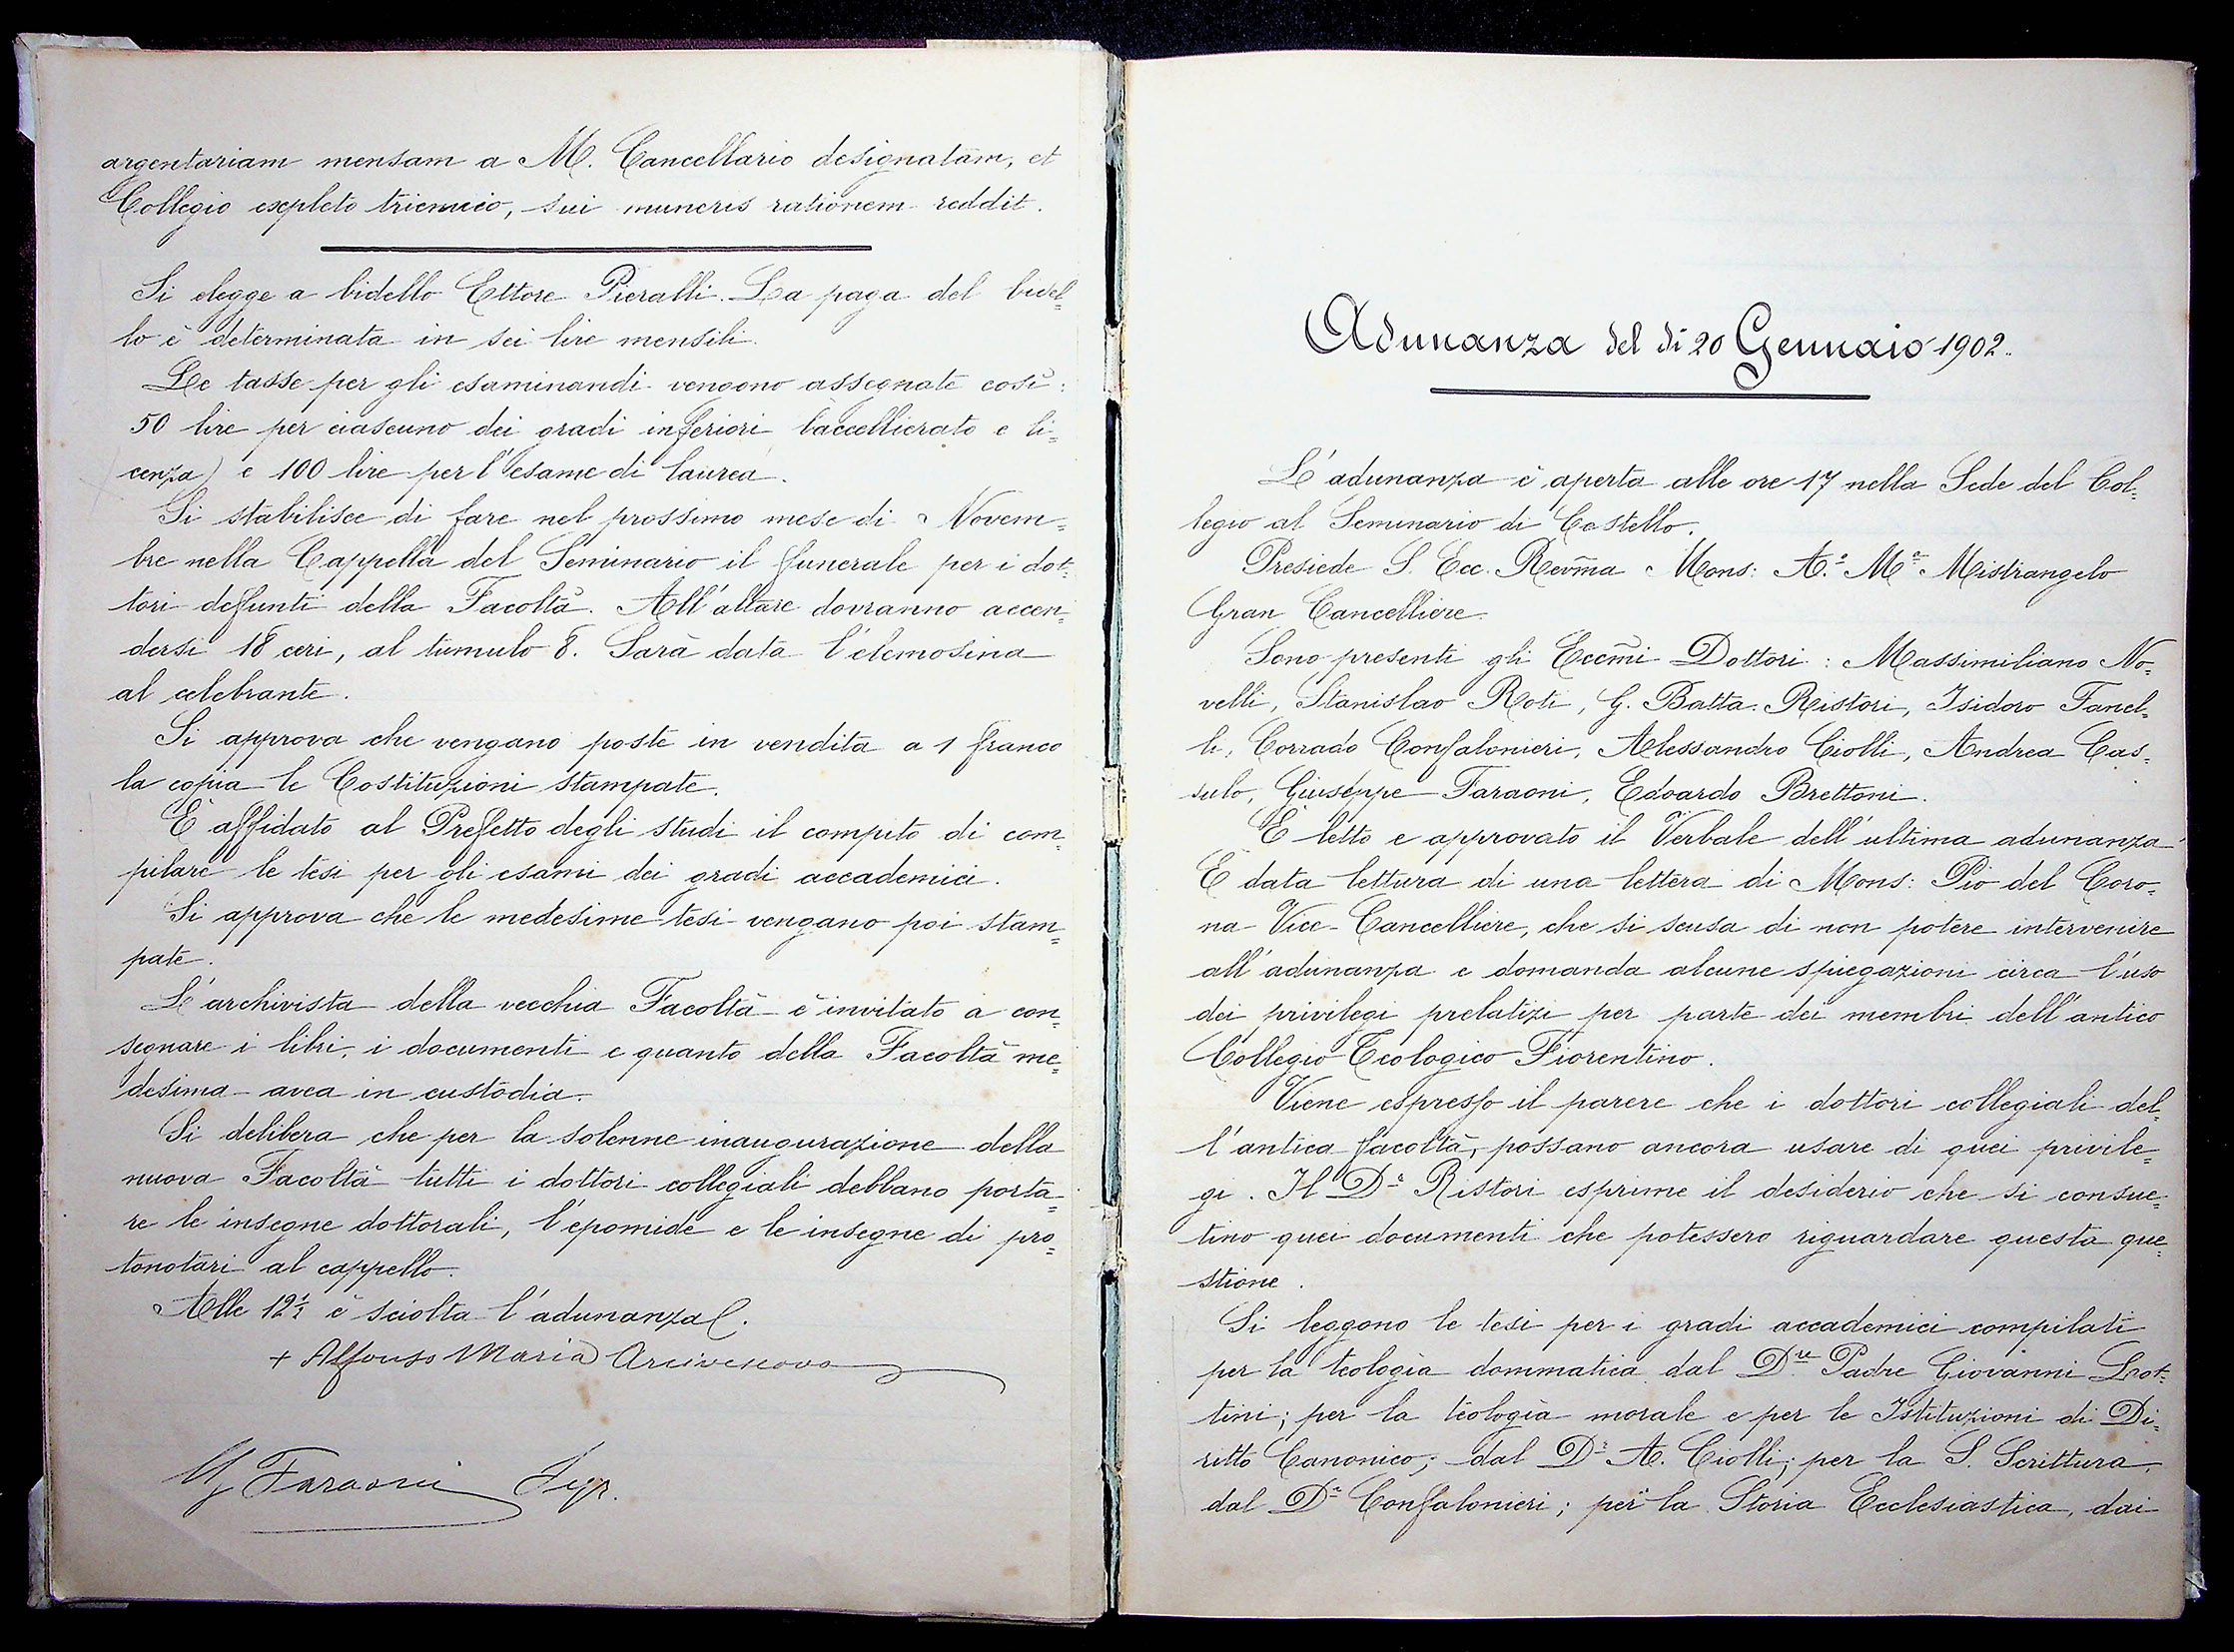 argentariam mensam a M. Cancellario designatam, et
Collegio expleto triennio, sui muneris rationem reddit.
Si elegge a bidello Ettore Pieralli. La paga del bidel=
lo è determinata in sei lire mensili.
Le tasse per gli esaminandi vengono assegnate così:
50 lire per ciascuno dei gradi inferiori baccellierato e li=
cenza) e 100 lire per l'esame di laurea.
Si stabilisce di fare nel prossimo mese di Novem=
bre nella Cappella del Seminario il funerale per i dot=
tori defunti della Facoltà. All'altare dovranno accen=
dersi 18 ceri, al tumulo 8. Sarà data l'elemosina
al celebrante.
Si approva che vengano poste in vendita a 1 franco
la copia le Costituzioni stampate.
È affidato al Prefetto degli studi il compito di com=
pilare le tesi per gli esami dei gradi accademici.
Si approva che le medesime tesi vengano poi stam=
pate.
L'archivista della vecchia Facoltà è invitato a con=
segnare i libri, i documenti e quanto della Facoltà me=
desima avea in custodia.
Si delibera che per la solenne inaugurazione della
nuova Facoltà tutti i dottori collegiali debbano porta=
re le insegne dottorali, l'epomide e le insegne di pro=
tonotari al cappello.
Alle 12½ è sciolta l'adunanza.
+ Alfonso Maria Arcivescovo
G Faraoni Segr.
Adunanza del dì 20 Gennaio 1902.
L'adunanza è aperta alle ore 17 nella Sede del Col=
legio al Seminario di Castello.
Presiede S. Ecc. Revm̃a Mons: A.º Mª Mistrangelo
Gran Cancelliere.
Sono presenti gli Eccm̃i Dottori: Massimiliano No=
velli, Stanislao Roti, G. Batta. Ristori, Isidoro Fanel=
li, Corrado Confalonieri, Alessandro Ciolli, Andrea Cas=
sulo, Giuseppe Faraoni, Edoardo Brettoni.
È letto e approvato il Verbale dell'ultima adunanza
È data lettura di una lettera di Mons: Pio del Coro=
na Vice-Cancelliere, che si scusa di non potere intervenire
all'adunanza e domanda alcune spiegazioni circa l'uso
dei privilegi prelatizi per parte dei membri dell'antico
Collegio Teologico Fiorentino.
Viene espresso il parere che i dottori collegiali del=
l'antica facoltà, possano ancora usare di quei privile=
gi. Il Dr Ristori esprime il desiderio che si consul=
tino quei documenti che potessero riguardare questa que=
stione.
Si leggono le tesi per i gradi accademici compilati
per la teologia dommatica dal Dre Padre Giovanni Lot=
tini; per la teologia morale e per le Istituzioni di Di=
ritto Canonico; dal Dr A. Ciolli; per la S. Scrittura,
dal Dr Confalonieri; per la Storia Ecclesiastica, dai